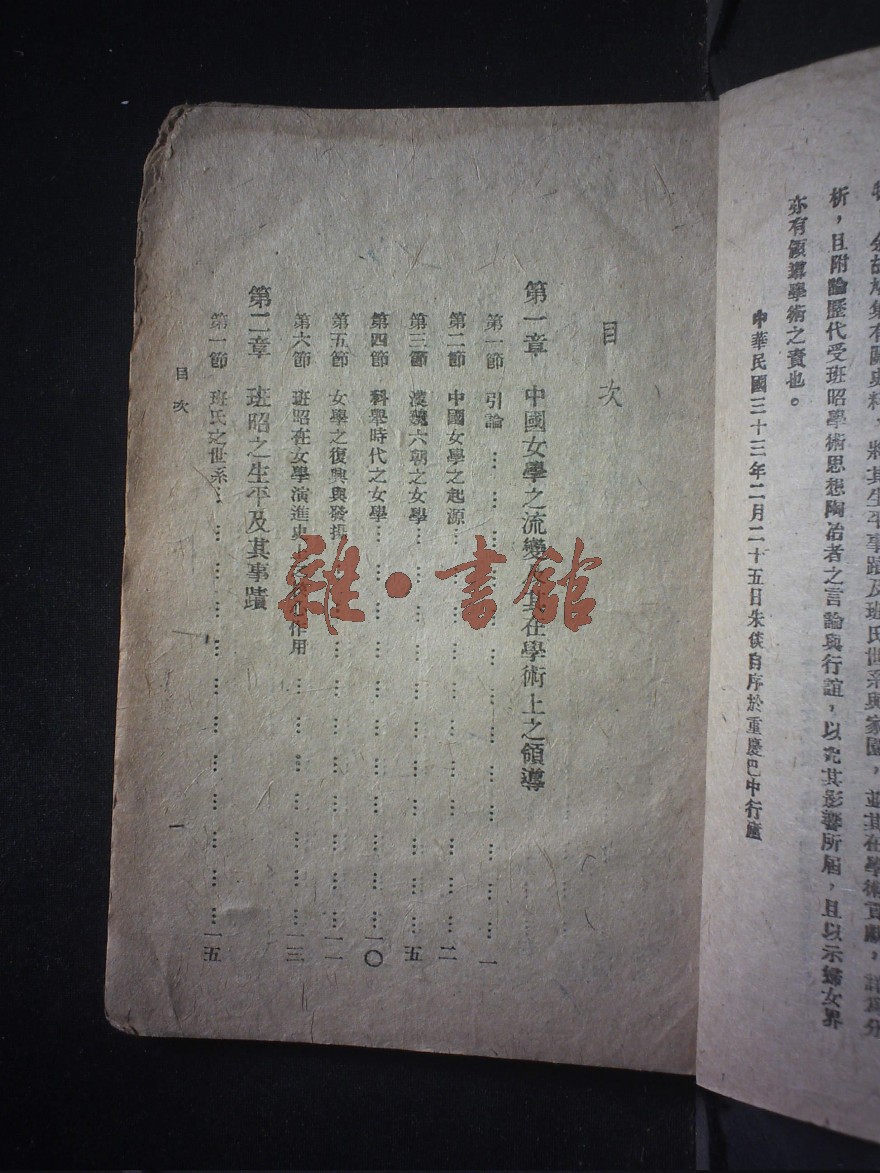 析，且附論歷代受班昭學術思想陶冶者之言論與行誼，以究其影響所屆，且以示婦女界
亦有領導學術之責也。
中華民國三十三年二月二十五日朱偰自序於重慶巴中行廬
目次
第一章 中國女學之流變及其在學術上之領導
第一節 引論………………一
第二節 中國女學之起源………………二
第三節 漢魏六朝之女學………………五
第四節 科舉時代之女學………………一〇
第五節 女學之復興與發揚………………一一
第六節 班昭在女學演進史 作用………………一三
第二章 班昭之生平及其事蹟
第一節 班氏之世系………………一五
目次
一
雜·書館